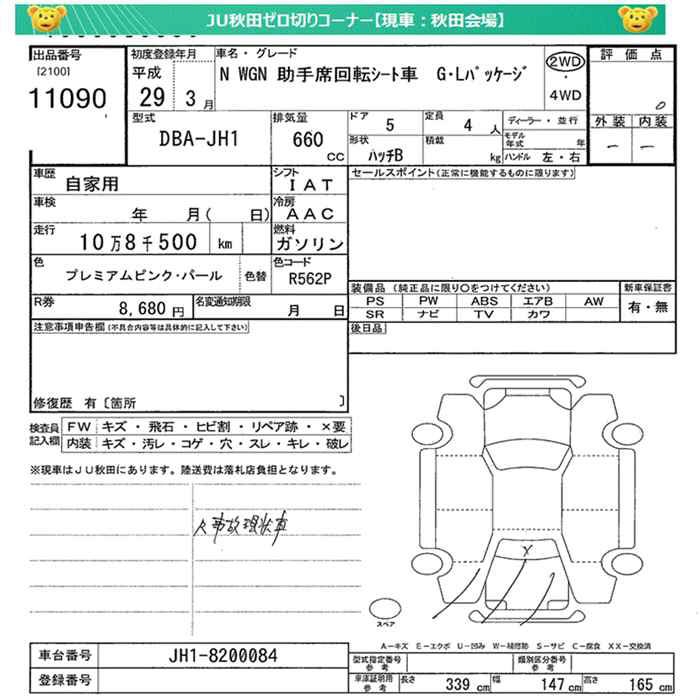 JU秋田ゼロ切りコーナー【現車：秋田会場】
出品番号
[2100]
11090
初度登録年月
平成
29 3月
車名・グレード
N WGN 助手席回転シート車 G・Lパッケージ
2WD
・
4WD
評価点
0
外装 内装
ー ー
型式
DBA-JH1
排気量
660
CC
ドア 5
定員 4 人
ディーラー・並行
形状
ハッチB
積載
kg
モデル年式 年
ハンドル 左・右
車歴
自家用
シフト
IAT
セールスポイント(正常に機能するものに限ります)
車検
年 月( 日)
冷房
AAC
走行
10万8千500 km
燃料
ガソリン
色
プレミアムピンク・パール
色替
色コード
R562P
装備品 (純正品に限り○をつけてください)
新車保証書
PS PW ABS エアB AW
有・無
SR ナビ TV カワ
R券
8,680円
名変通知期限
月 日
後日品
注意事項申告欄(不具合内容等は具体的に記入して下さい)
修復歴 有〔箇所 〕
検査員記入欄
FW キズ・飛石・ヒビ割・リペア跡・×要
内装 キズ・汚レ・コゲ・穴・スレ・キレ・破レ
※現車はJU秋田にあります。陸送費は落札店負担となります。
事故現状車
スペア
A-キズ E-エクボ U-凹み W-補修跡 S-サビ C-腐食 XX-交換済
車台番号
JH1-8200084
型式指定番号
参考
類別区分番号
参考
登録番号
車庫証明用
参考
長さ 339 cm
幅 147 cm
高さ 165 cm